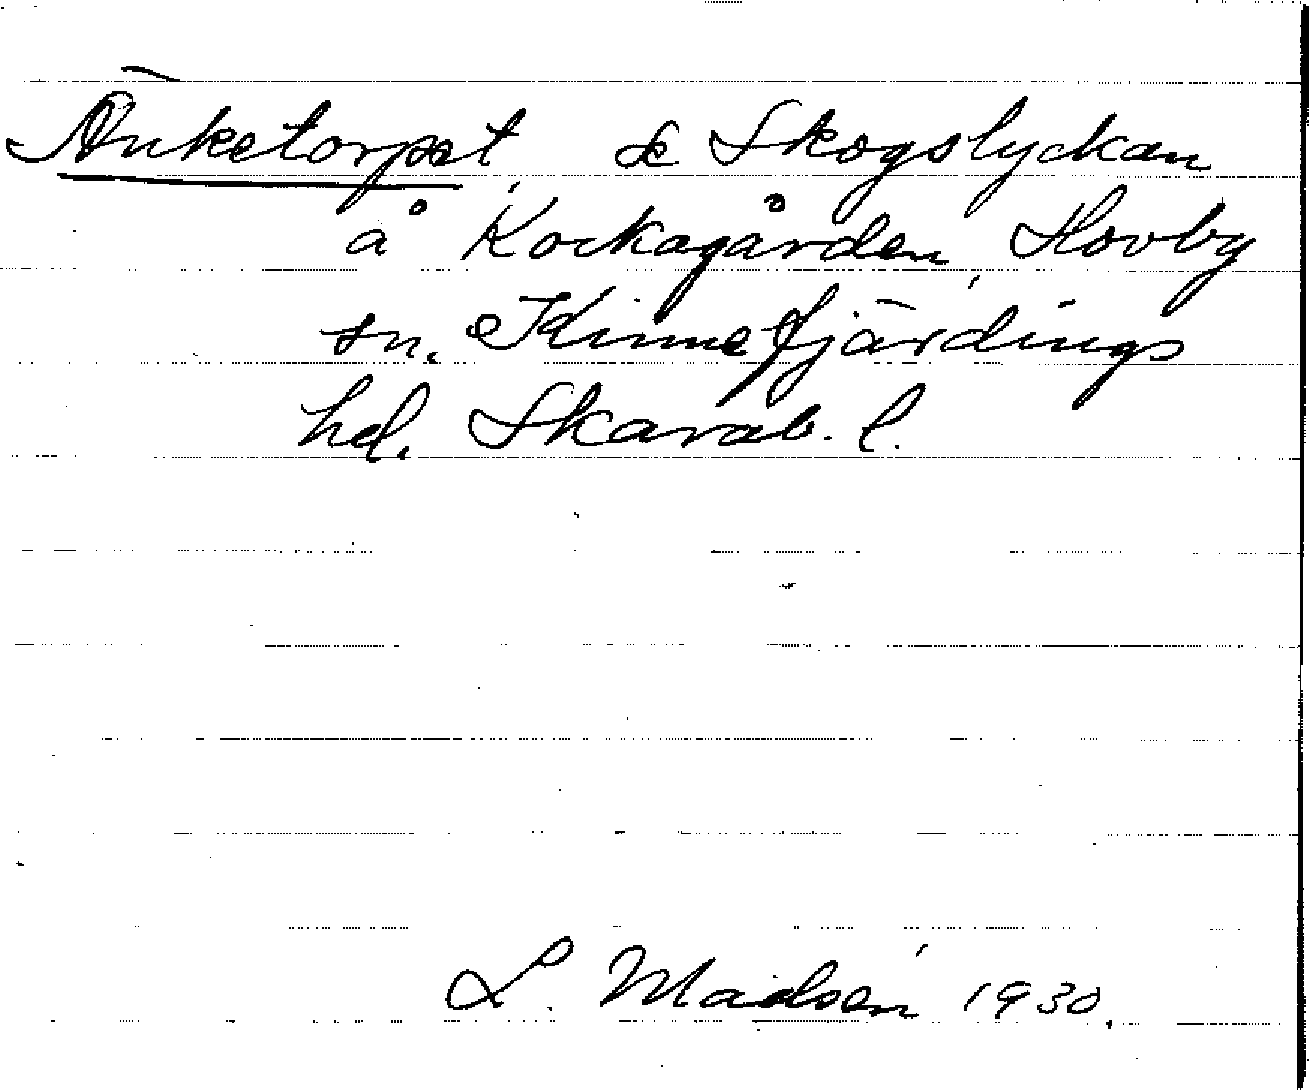 Änketorpet, se Skogslyckan
å Kockagården, Hovby
sn. Kinnefjärdings
hd. Skarab. l.
L. Madsén 1930.